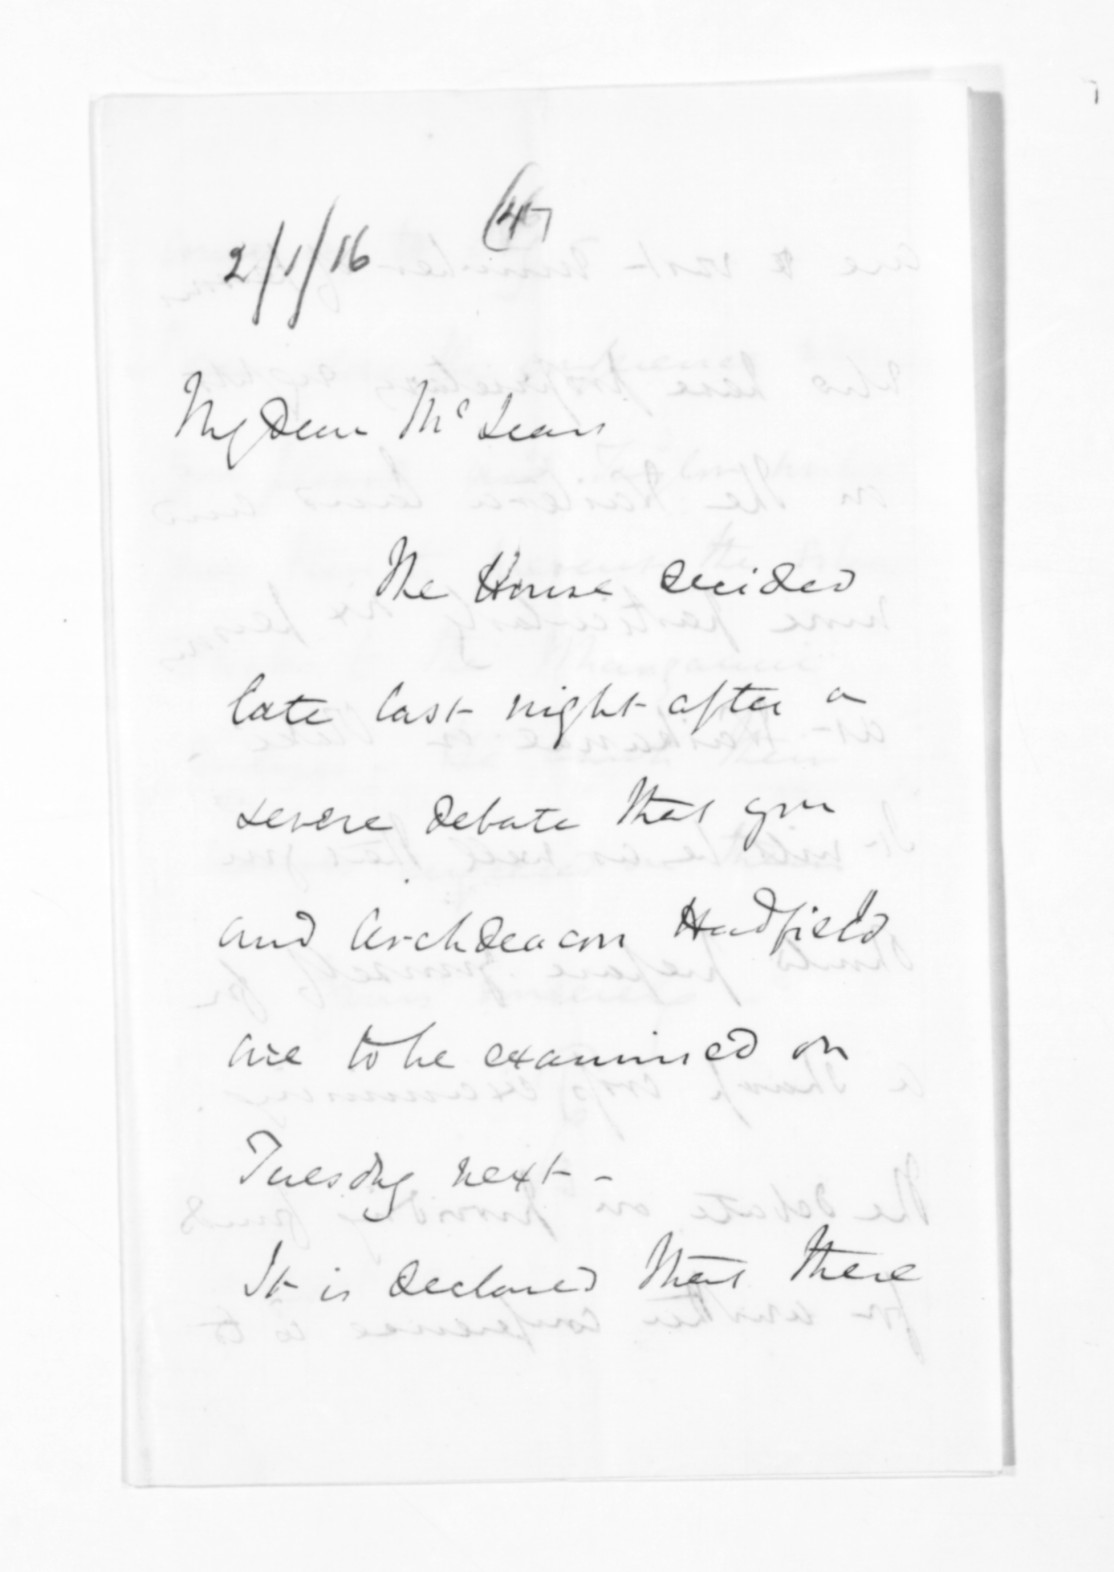 2/1/16
My Dear McLean
The House decided
late last night after a
severe debate that you
and Archdeacon Hadfield
are to be examined on
Tuesday next -
It is declared that there